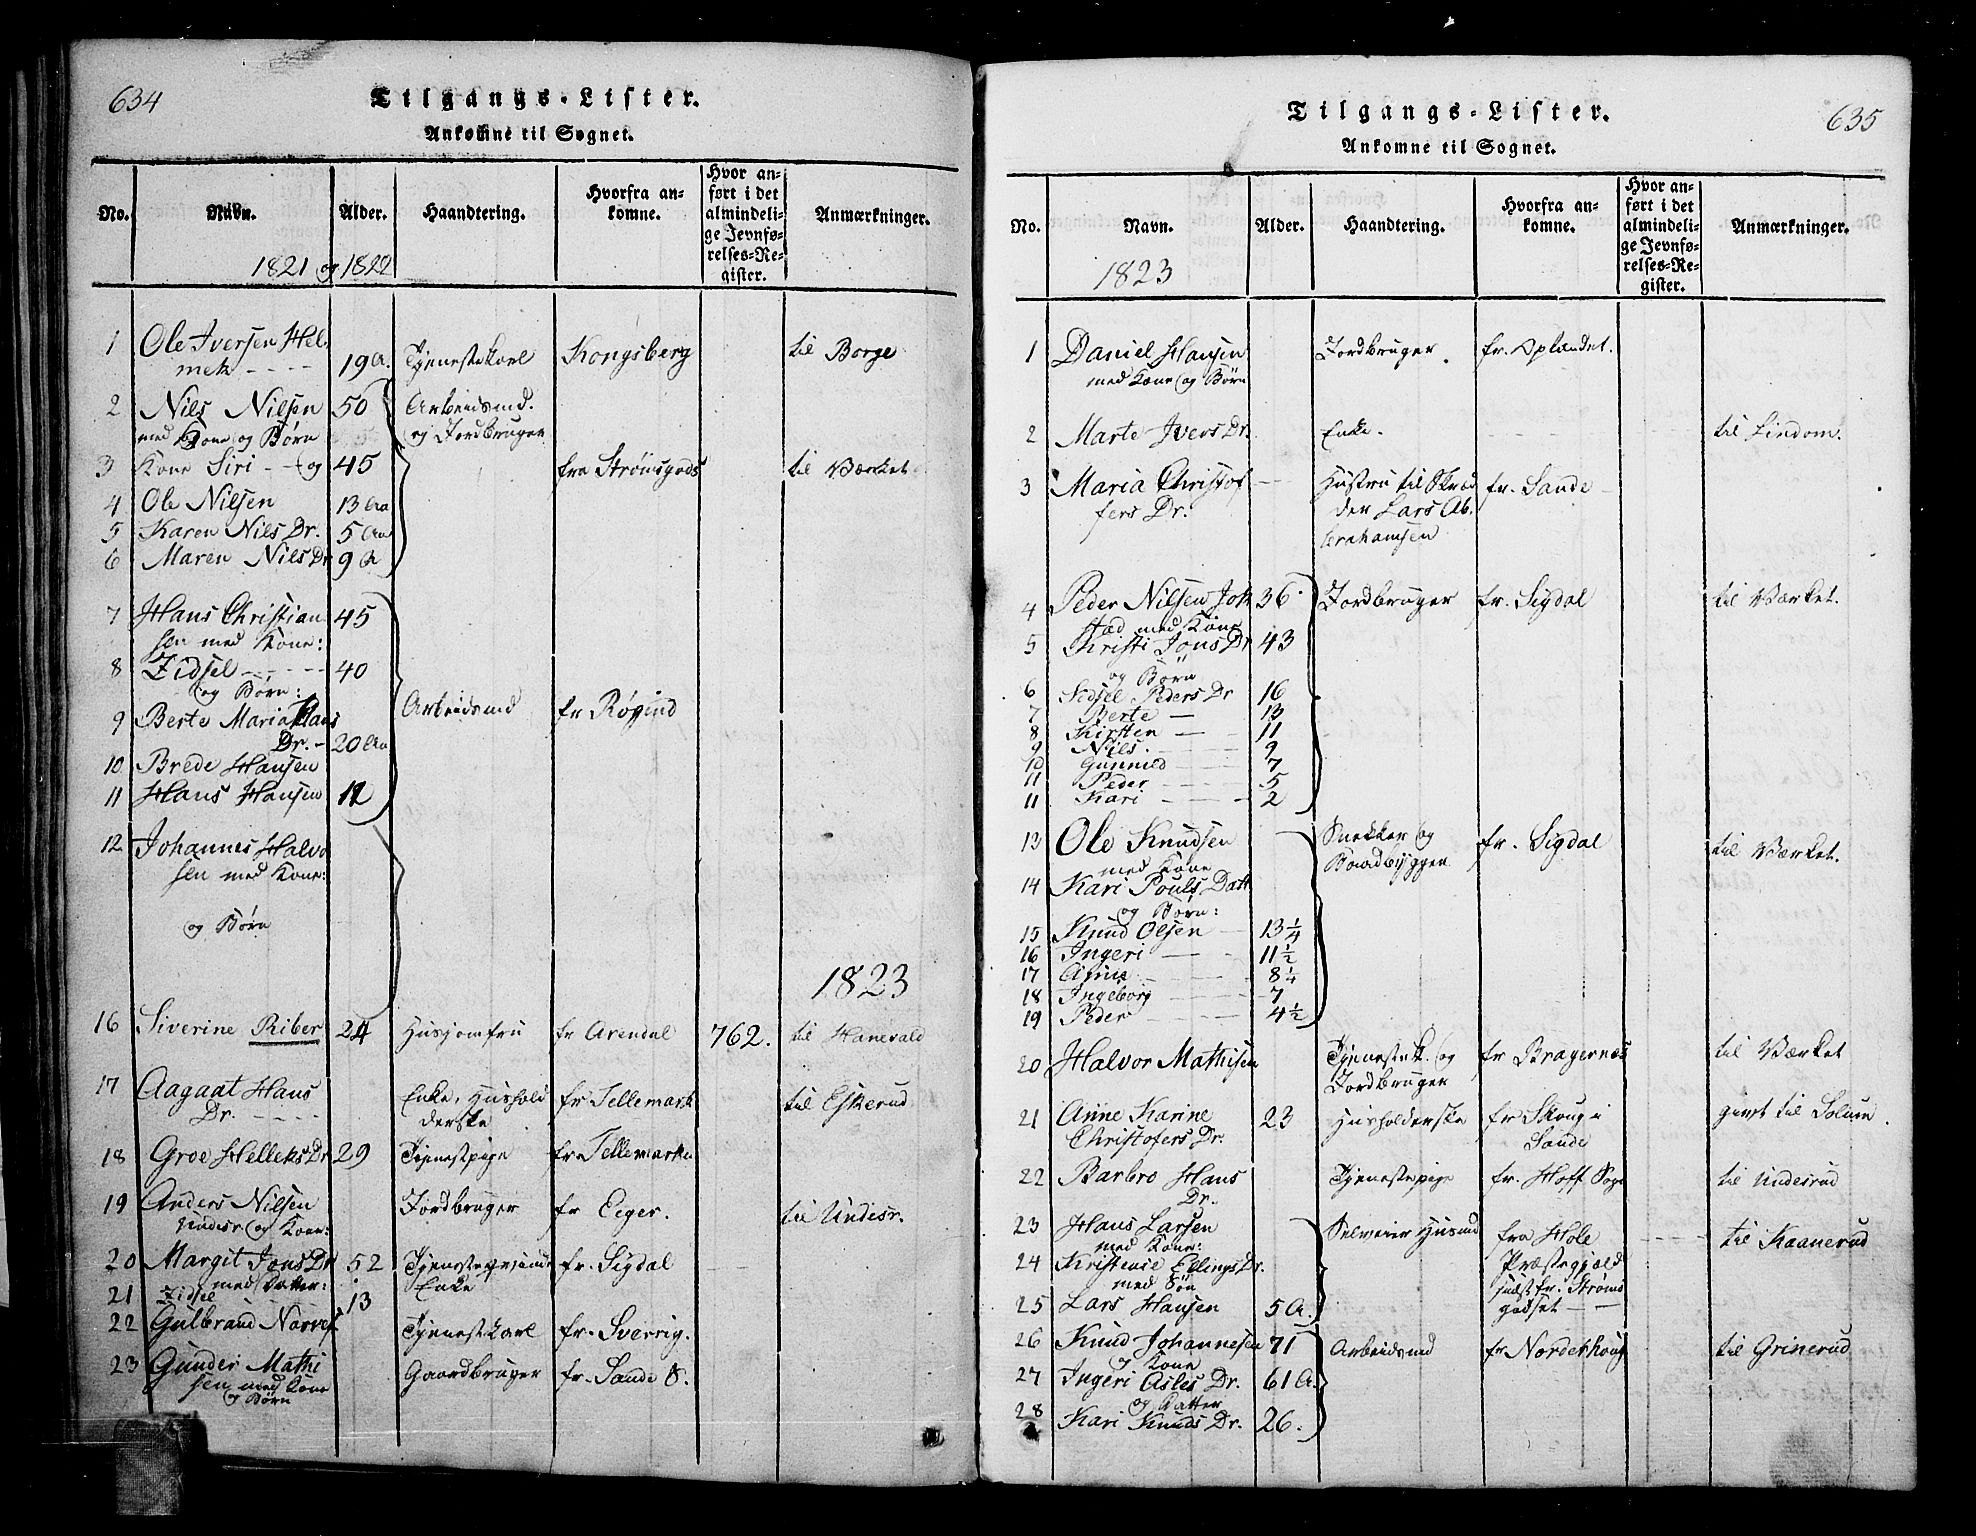 634
Tilgangs-Lister.
Ankomne til Sognet.
No. Navn. Alder. Haandtering. Hvorfra an-komne. Hvor an-ført i det almindeli-ge Jevnfø-relses-Re-gister. Anmærkninger.
1821 og 1822
1 Ole Iversen Hel
metz - - - - 19 A. Tjenestekarl Kongsberg til Borge
2 Nils Nilsen 50 Arbeidsmd.
med Kone og Børn og Jordbruger
3 Kone Siri - - og 45 fra Strømsgods til Værket
4 Ole Nilsen 13 Aa
5 Karen Nils Dr. 5 Aa
6 Maren Nils Dr 9 A
7 Hans Christian 45
sen med Kone:
8 Zidsel - - - - - 40
og Børn:
9 Berte Maria Hans Arbeidsmd fr Røgind
Dr. - 20 Aa
10 Brede Hansen
11 Hans Hansen 12
12 Johannes Halvo
sen med Kone:
og Børn
1823
16 Siverine Riber 24 Husjomfru fr Arendal 762. til Hanevald
17 Aagaat Hans Enke, Hushold fr Tellemark til Eskerud
Dr. - - - - derske
18 Groe Helleks Dr 29 Tjenestpige fr Tellemarken
19 Anders Nilsen Jordbruger fr Eger. til Undesr.
Undesr. og Kone:
20 Margit Jons Dr 52 fr. Sigdal
med Datter: Enke
21 Zidsel 13
22 Gulbrand Tjenestkarl fr. Sverrig.
23 Gunder Mathi Gaardbruger fr. Sande S.
sen med Kone
og Børn
635
Tilgangs-Lister.
Ankomne til Sognet.
No. Navn. Alder. Haandtering. Hvorfra an-komne. Hvor an-ført i det almindeli-ge Jevnfø-relses-Re-gister. Anmærkninger.
1823
1 Daniel Hansen Jordbruger. fr. Oplandet.
med Kone og Børn
2 Marte Ivers Dr. Enke. til Lindom.
3 Maria Christof Hustru til Skræd fr. Sande
fers Dr. der Lars Ab.
brahamsen
4 Peder Nilsen Jok 36 Jordbruger fr. Sigdal til Værket.
stad med Kone
5 Kristi Jons Dr 43
og Børn
6 Sidsel Peders Dr 16
7 Berte - 13
8 Kirsten - - 11
9 Nils. - - - 9
10 Gunnild - - 7
11 Peder - - - 5
11 Kari - - - 2
13 Ole Knudsen Snekker og fr. Sigdal til Værket.
med Kone Baadbygger
14 Kari Pouls Datt
og Børn:
15 Knud Olsen - 13 1/4
16 Ingeri - - 11 1/2
17 Anne - - - 8 1/4
18 Ingeborg - - - 7
19 Peder - - - 4 1/2
20 Halvor Mathisen Tjenestek. og fr Bragernæs til Værket
Jordbruger
21 Anne Karine 23 Husholderske fr Skoug i givt til Solum
Christofers Dr. Sande
22 Barbro Hans Tjenestepige fr. Hoff Sogn til Underud
Dr.
23 Hans Larsen Selveier Husmd fra Hole til Kaanerud
med Kone: Præstegjæld
24 Kristense Ellings Dr. sidst fr. Strøms
med Søn godset - -
25 Lars Hansen 5 A.
26 Knud Johannesen 71 Arbeidsmd fr Norderhoug til Grinerud
Kone
27 Ingeri Asles Dr. 61 A.
og Datter
28 Kari Knuds Dr. 26.